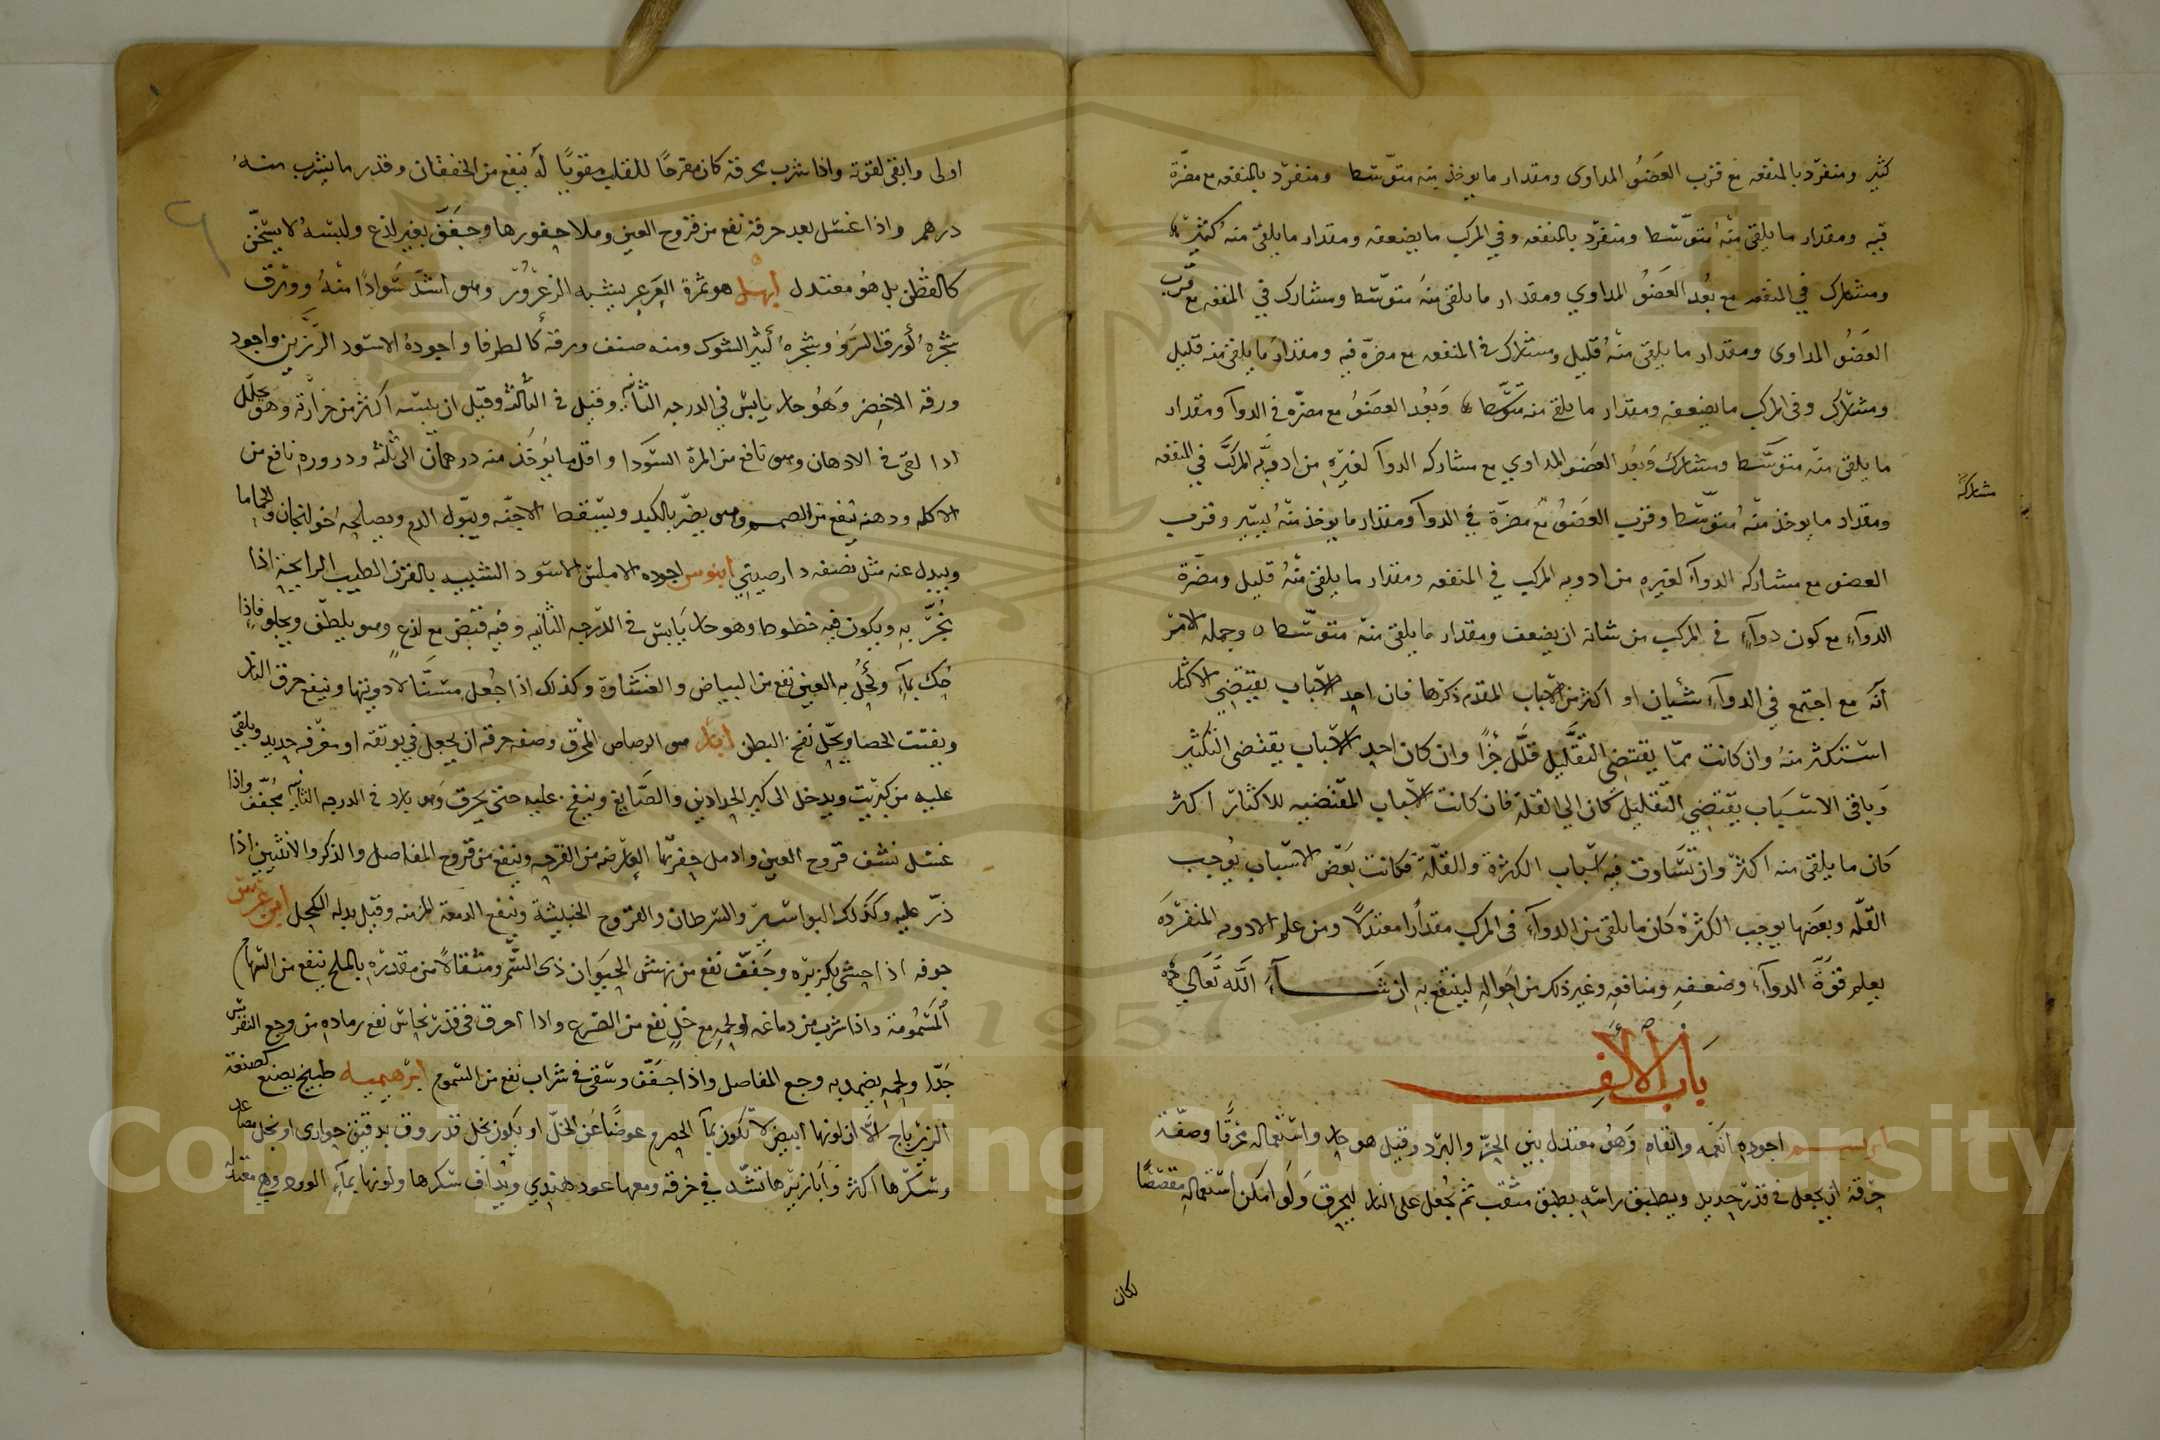 كثير ومنفرد بالمنفعه مع قرب العضو المداوى ومقدار ما يوخذ منه متوسطا ومنفرد بالمنفعه مع مضرة
فيه ومقدار ما يلقى منه متوسطا ومنفرد بالمنفعه وفي المركب ما يضعفه ومقدار ما يلقى منه كثير
ومشارك في المنفعه مع بعد العضو المداوي ومقدار ما يلقى منه متوسطا ومشارك في المنفعه مع قرب
العضو المداوى ومقدار ما يلقى منه قليل ومشترك في المنفعه مع مضرة فيه ومقدار ما يلقى منه قليل
ومشترك وفى المركب ما يضعفه ومقدار ما يلقى منه متوسطا وبعد العضو مع مضره في الدوآ ومقدار
ما يلقى منه متوسطا ومشارك وبعد العضو المداوي مع مشاركه الدوآ لغيره من ادويه المركب في المنفعه
مشاركه
ومقدار ما يوخذ منه متوسطا وقرب العضو مع مضرة في الدوآ ومقدار ما يوخذ منه يسير وقرب
العضو مع مشاركه الدوآء لغيره من ادويه المركب في المنفعه ومقدار ما يلقى منه قليل ومضرة
الدوآء مع كون دوآء في المركب من شانه ان يضعف ومقدار ما يلقى منه متوسطا وجمله الامر
انه مع اجتمع في الدوآء شيان او اكثر من الاسباب المقدم ذكرها فان احد الاسباب يقتضي الاكثار
استكثر منه وان كانت مما يقتضي التقليل قلل جزا وان كان احد الاسباب يقتضى التكثير
وباقي الاسباب يقتضي التقليل كان الي القلة فان كانت الاسباب المقتضيه للاكثار اكثر
كان ما يلقى منه اكثر وان تساوت فيه اسباب الكثرة والقلة فكانت بعض الاسباب يوجب
القله وبعضها يوجب الكثره كان ما يلقى من الدوآء في المركب مقدارا معتدلا ومن علم الادويه المنفرده
يعلم قوة الدوآء وضعفه ومنافعه وغير ذلك من احواله لينتفع به ان شآء الله تعالي
باب الألف
ابريسم اجوده انعمه وانقاه وهو معتدل بين الحر والبرد وقيل هو حار واستعماله محرقا وصفة
حرقه ان يجعل في قدر جديد ويطبق راسه بطبق مثقب ثم يجعل على النار ليحرق ولو امكن استعماله مقصصا
لكان
اولى وابقى لقوته واذا شرب بحرقه كان مفرحا للقلب مقويا له ينفع من الخفقان وقدر ما يشرب منه
درهم واذا غسل بعد حرقه نفع من قروح العين وملا حفورها وجفف بغير لذع ولبسه لا يسخن
كالقطن بل هو معتدل ابهل هو ثمرة العرعر يشبه الزعرور وهو اشد سوادا منه وورق
شجره كورق السرو وشجره كثير الشوك ومنه صنف ورقه كالطرفا واجوده الاسود الرزين واجود
ورقه الاخضر وهو حار يابس في الدرجه الثانيه وقيل في الثالثه وقيل ان يبسه اكثر من حرارته وهو محلل
اذا لقى في الادهان وهو نافع من المرة السودا واقل ما يوخذ منه درهمان الى ثلثه وذروره نافع من
الاكله ودهنه ينفع من الصمم وهو يضر بالكبد ويسقط الاجنه ويبول الدم ويصلحه خولنجان والحماما
ويبدل عنه مثل نصفه دارصيني ابنوس اجوده الاملس الاسود الشبيه بالقرن الطيب الرايحة اذا
بخر به ويكون فيه خطوط وهو حار يابس في الدرجه الثانيه وفيه قبض مع لذع وهو يلطف ويجلو فاذا
حك بماء وكحل به العين نفع من البياض والغشاوة وكذلك اذا جعل مسنا لادويتها وينفع حرق النار
ويفتت الحصا ويحل نفخ البطن ابار هو الرصاص المحرق وصفه حرقه ان يجعل في بوتقه او مغرفه حديد ويلقى
عليه من كبريت ويدخل الى كير الحدادين والصايغ وينفخ عليه حتى يحرق وهو بارد في الدرجه الثانيه مجفف واذا
غسل نشف قروح العين وادمل حفرتها العارضه من القرحه وينفع من قروح المفاصل والذكر والانثيين اذا
ذر عليه وكذلك البواسير والسرطان والقروح الخبيثة وينفع الدمعة المزمنه وقيل بدله الكحل ابن عرس
جوفه اذا حشى بكزبره وجفف نفع من نهش الحيوان ذى السم ومثقالا من مقدره بالملح ينفع من السهام
المسمومة واذا شرب من دماغه او لحمه مع خل نفع من الصرع واذا احرق في قدر نحاس نفع رماده من وجع النقرس
جدا ولحمه يضمد به وجع المفاصل واذا جفف وسقى في شراب نفع من السموم ابرهيميه طبيخ يصنع كصنعة
الزيرباج الا ان لونها ابيض لا تكون بمآ الحصرم عوضا عن الخل او يكون بخل قد روق بدقيق حوارى او بخل مصاعد
وسكرها اكثر وابازيرها تشد في خرقه ومعها عود هندي ويداف سكرها ولوزها بمآء الورد وهي معتدله